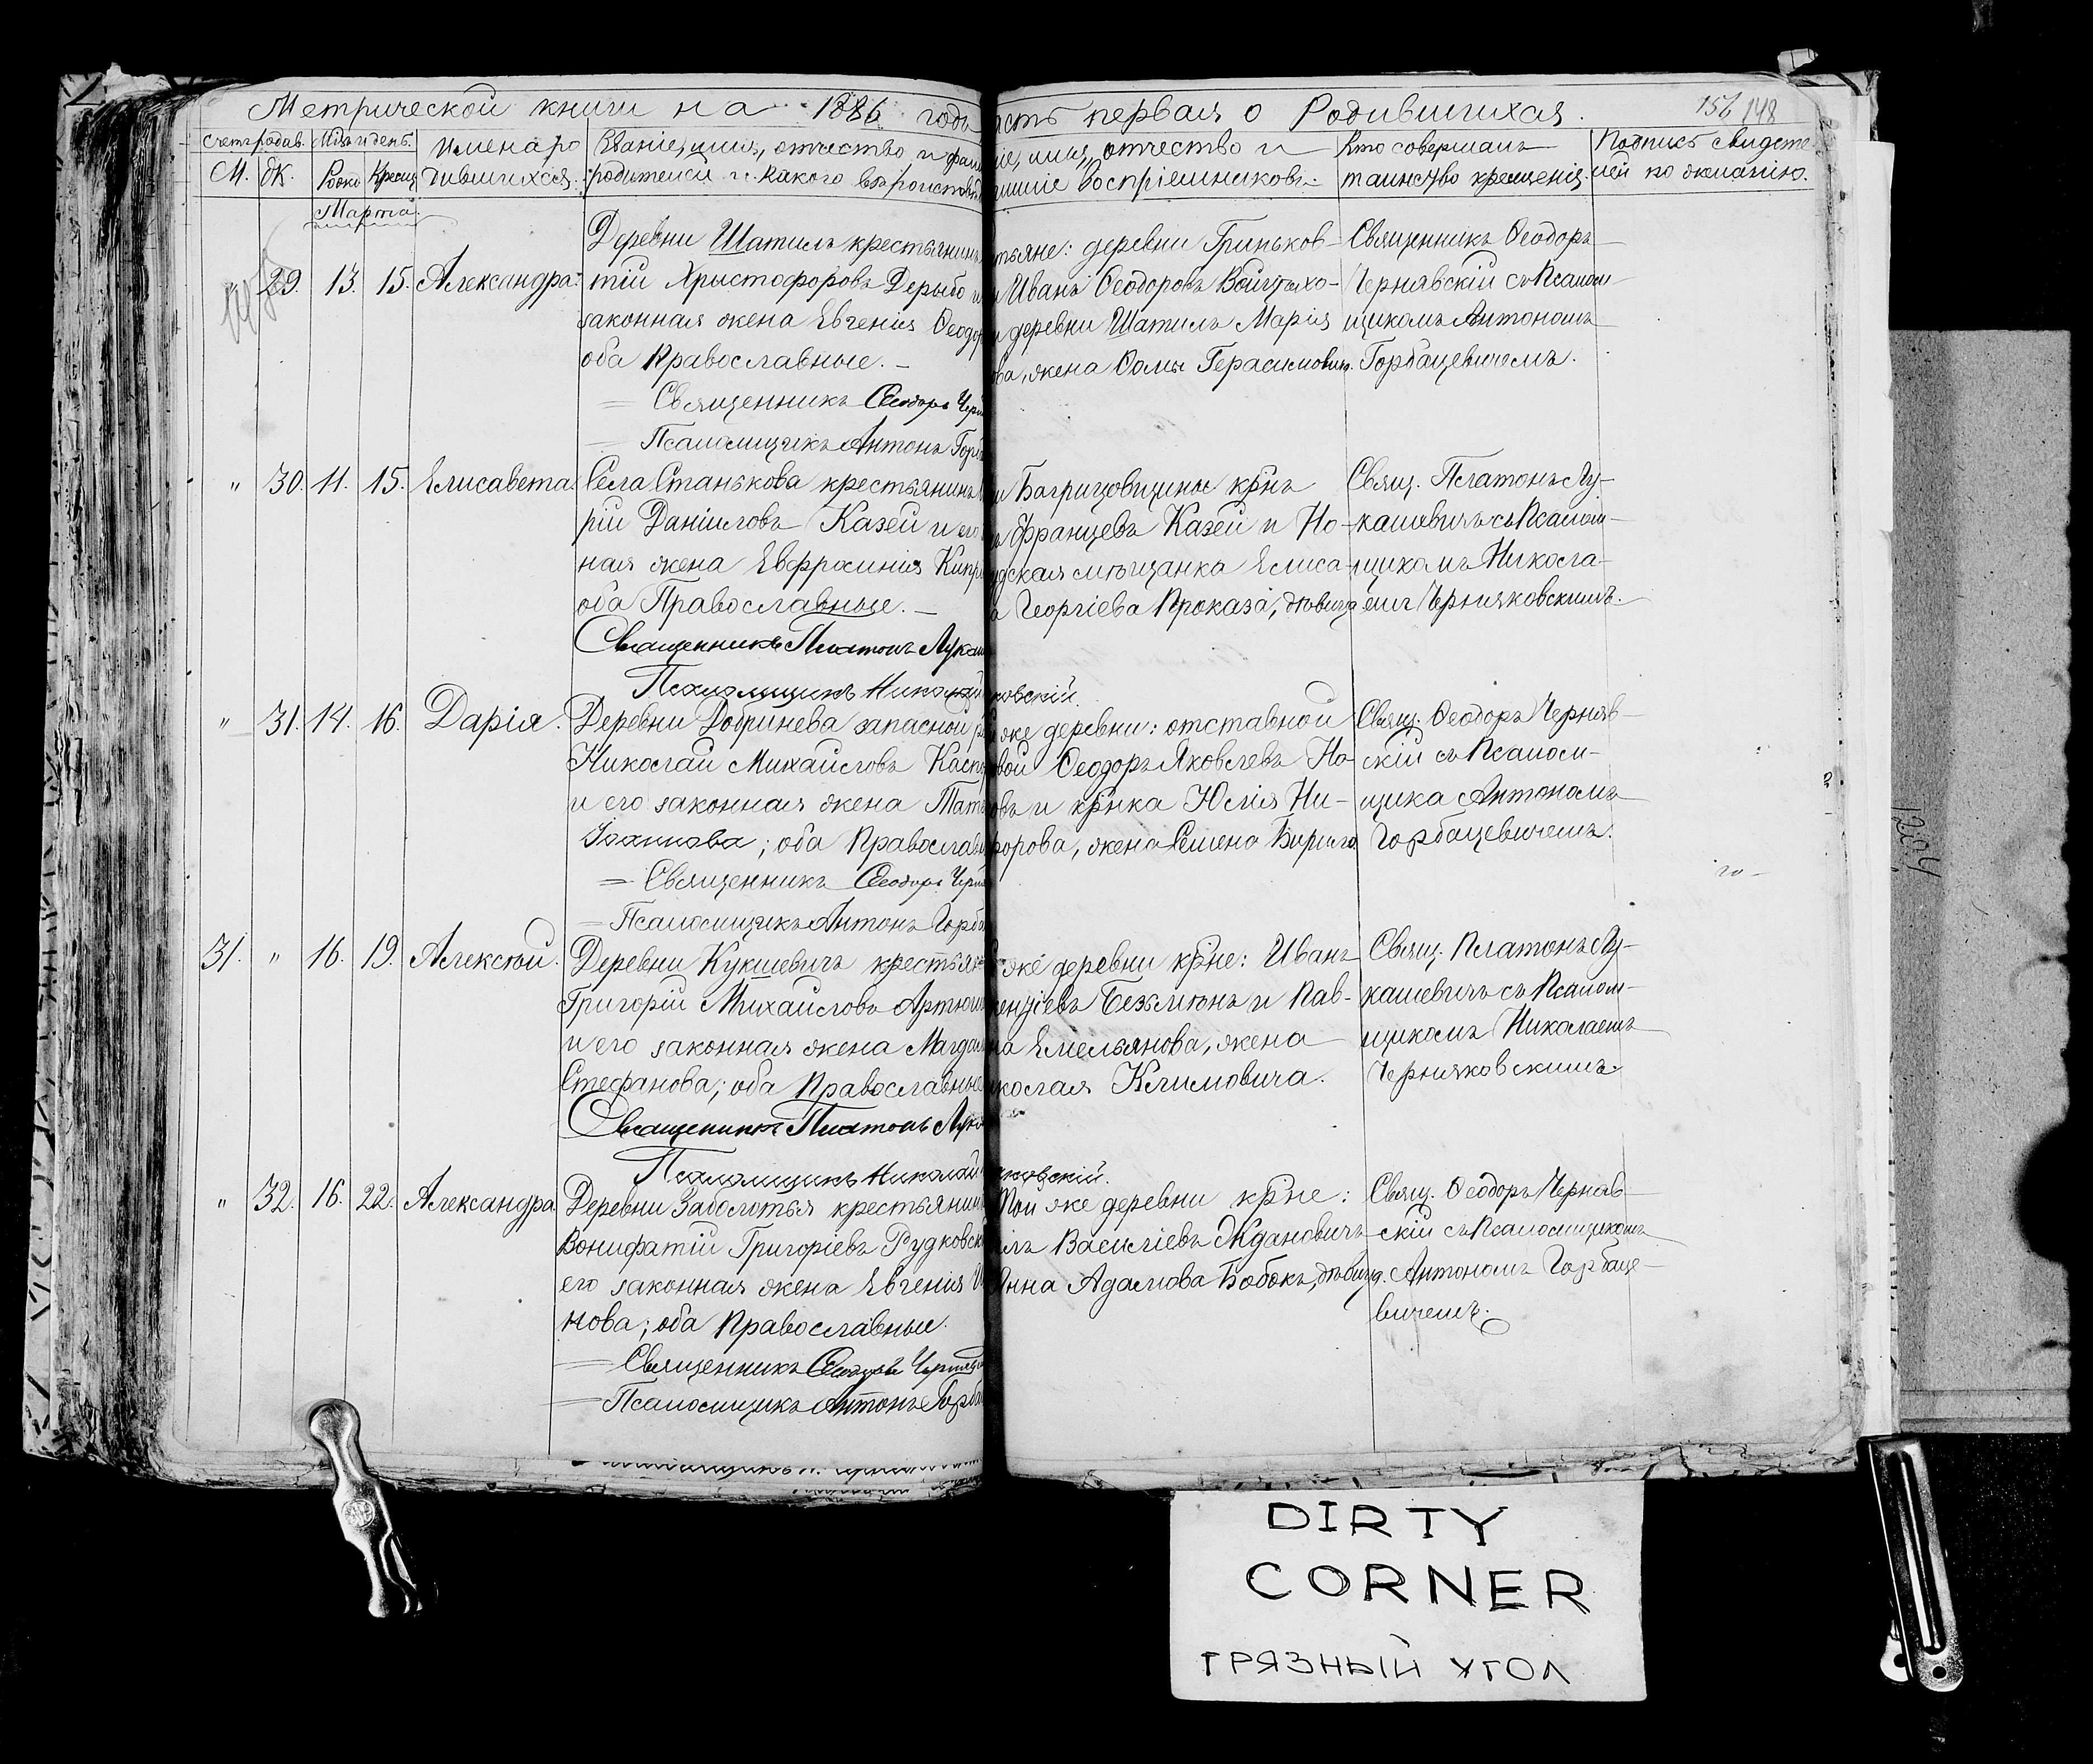 Метрической книги на 1886 годъ
асть первая о Родившихся.
156 148
Счетъ родав. Мѣсъ и день.
М. Ж. Рожд. Крещ.
Имена ро
дившихся.
Званіе, имя, отчество и фам
родителей и какого вѣроисповѣд
іе, имя, отчество и
илліе воспріемниковъ.
Кто совершалъ
таинство крещенія.
Подпись свидѣте
лей по желанію.
Марта
" 29. 13. 15. Александра.
Деревни Шатилъ крестьянинъ
тій Христофоровъ Дерыбо и
законная жена Евгенія Ѳеодор
оба Православные. —
= Священникъ Ѳеодоръ Черн
— Псаломщикъ Антонъ Горб
тьяне: деревни Гриньков-
и Иванъ Ѳеодоровъ Войтехо-
и деревни Шатилъ Марія
ова, жена Ѳомы Герасимович.
Священникъ Ѳеодоръ
Чернявскій съ Псалом-
щикомъ Антономъ
Горбацевичемъ.
" 30. 11. 15. Елисавета.
Села Станькова крестьянинъ
рій Даніиловъ Казей и его
ная жена Евфросинія Кипр
оба Православные. —
Священникъ Платонъ Лукаш
Псаломщикъ Николай
ковскій.
и Багрицовщины крнъ
ъ Францевъ Казей и Но-
дская мѣщанка Елиса-
а Георгіева Проказа, дѣвица
Свящ. Платонъ Лу-
кашевичъ съ Псалом-
щикомъ Никола-
емъ Черняковскимъ.
" 31. 14. 16. Дарія.
Деревни Добринева запасной ря
Николай Михайловъ Каспо
и его законная жена Тать
Іоаннова; оба Православн
= Священникъ Ѳеодоръ Черн
= Псаломщикъ Антонъ Горба
же деревни: отставной
вой Ѳеодоръ Яковлевъ Но-
овъ и крнка Юлія Ни-
форова, жена Семена Бирило
Свящ. Ѳеодоръ Черняв-
скій съ Псалом-
щика Антономъ
Горбацевичемъ.
31. " 16. 19. Алексѣй.
Деревни Кукшевичъ крестьян
Григорій Михайловъ Артюш
и его законная жена Магдал
Стефанова; оба Православные
Священникъ Платонъ Лука
Псаломщикъ Николай
яковскій.
же деревни крне: Иванъ
ентіевъ Безмѣнъ и Пав-
на Емельянова, жена
колая Климовича.
Свящ. Платонъ Лу-
кашевичъ съ Псалом-
щикомъ Николаемъ
Черняковскимъ.
" 32. 16. 22. Александра.
Деревни Заболотья крестьянинъ
Вонифатій Григоріевъ Рудковск
его законная жена Евгенія И
нова; оба Православные.
= Священникъ Ѳеодоръ Чернявс
= Псаломщикъ Антонъ Горба
Той же деревни крне:
илъ Василіевъ Ждановичъ
Анна Адамова Бобокъ, дѣвица.
Свящ. Ѳеодоръ Черняв-
скій съ Псаломщикомъ
Антономъ Горбаце-
вичемъ.
DIRTY
CORNER
ГРЯЗНЫЙ УГОЛ